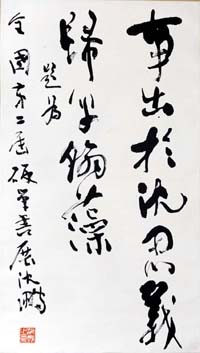 事出於沈思義
歸乎翰藻
題為
全國第二屆硬筆書展沈鵬